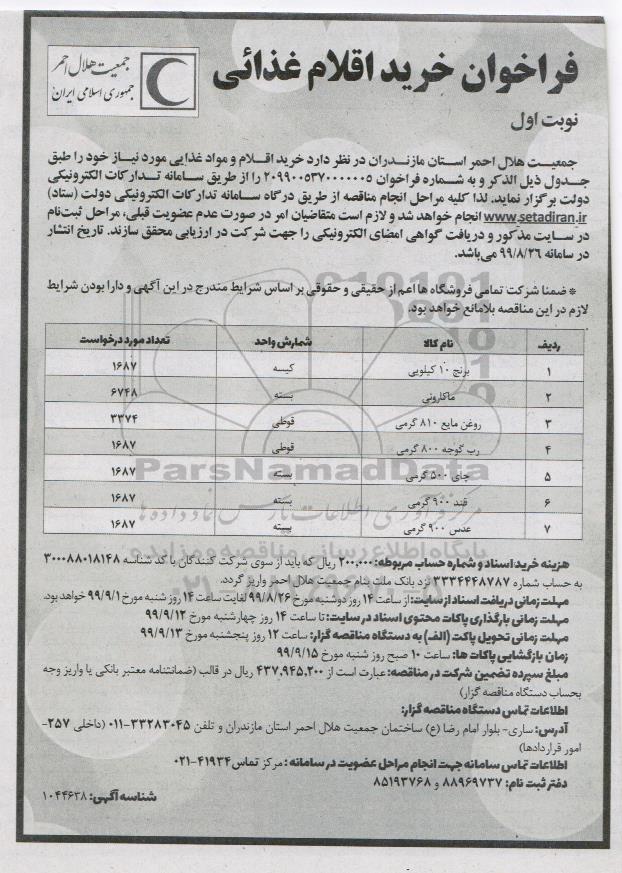 فراخوان خرید اقلام غذائی
جمعیت هلال احمر
جمهوری اسلامی ایران
نوبت اول
جمعیت هلال احمر استان مازندران در نظر دارد خرید اقلام و مواد غذایی مورد نیاز خود را طبق
جدول ذیل الذکر و به شماره فراخوان ۲۰۹۹۰۰۵۳۷۰۰۰۰۰۰۵ را از طریق سامانه تدارکات الکترونیکی
دولت برگزار نماید. لذا کلیه مراحل انجام مناقصه از طریق درگاه سامانه تدارکات الکترونیکی دولت (ستاد)
www.setadiran.ir انجام خواهد شد و لازم است متقاضیان امر در صورت عدم عضویت قبلی، مراحل ثبت‌نام
در سایت مذکور و دریافت گواهی امضای الکترونیکی را جهت شرکت در ارزیابی محقق سازند. تاریخ انتشار
در سامانه ۹۹/۸/۲۶ می‌باشد.
* ضمنا شرکت تمامی فروشگاه ها اعم از حقیقی و حقوقی بر اساس شرایط مندرج در این آگهی و دارا بودن شرایط
لازم در این مناقصه بلامانع خواهد بود.
ردیف نام کالا شمارش واحد تعداد مورد درخواست
۱ برنج ۱۰ کیلویی کیسه ۱۶۸۷
۲ ماکارونی بسته ۶۷۴۸
۳ روغن مایع ۸۱۰ گرمی قوطی ۳۳۷۴
۴ رب گوجه ۸۰۰ گرمی قوطی ۱۶۸۷
۵ چای ۵۰۰ گرمی بسته ۱۶۸۷
۶ قند ۹۰۰ گرمی بسته ۱۶۸۷
۷ عدس ۹۰۰ گرمی بسته ۱۶۸۷
ParsNamadData
مرکز فرآوری اطلاعات پارس نماد داده ها
پایگاه اطلاع رسانی مناقصه و مزایده
هزینه خرید اسناد و شماره حساب مربوطه: ۲۰۰,۰۰۰ ریال که باید از سوی شرکت کنندگان با کد شناسه ۳۰۰۰۸۸۰۱۸۱۴۸
به حساب شماره ۳۳۳۴۴۴۸۷۸۷ نزد بانک ملت بنام جمعیت هلال احمر واریز گردد.
مهلت زمانی دریافت اسناد از سایت: از ساعت ۱۴ روز دوشنبه مورخ ۹۹/۸/۲۶ لغایت ساعت ۱۴ روز شنبه مورخ ۹۹/۹/۱ خواهد بود.
مهلت زمانی بارگذاری پاکات محتوی اسناد در سایت: تا ساعت ۱۴ روز چهارشنبه مورخ ۹۹/۹/۱۲
مهلت زمانی تحویل پاکت (الف) به دستگاه مناقصه گزار: ساعت ۱۲ روز پنجشنبه مورخ ۹۹/۹/۱۳
زمان بازگشایی پاکات ها: ساعت ۱۰ صبح روز شنبه مورخ ۹۹/۹/۱۵
مبلغ سپرده تضمین شرکت در مناقصه: عبارت است از ۴۳۷,۹۴۵,۲۰۰ ریال در قالب (ضمانتنامه معتبر بانکی یا واریز وجه
بحساب دستگاه مناقصه گزار)
اطلاعات تماس دستگاه مناقصه گزار:
آدرس: ساری- بلوار امام رضا (ع) ساختمان جمعیت هلال احمر استان مازندران و تلفن ۳۳۲۸۳۰۴۵-۰۱۱ (داخلی ۲۵۷-
امور قراردادها)
اطلاعات تماس سامانه جهت انجام مراحل عضویت در سامانه: مرکز تماس ۴۱۹۳۴-۰۲۱
دفتر ثبت نام: ۸۸۹۶۹۷۳۷ و ۸۵۱۹۳۷۶۸
شناسه آگهی: ۱۰۴۴۶۳۸